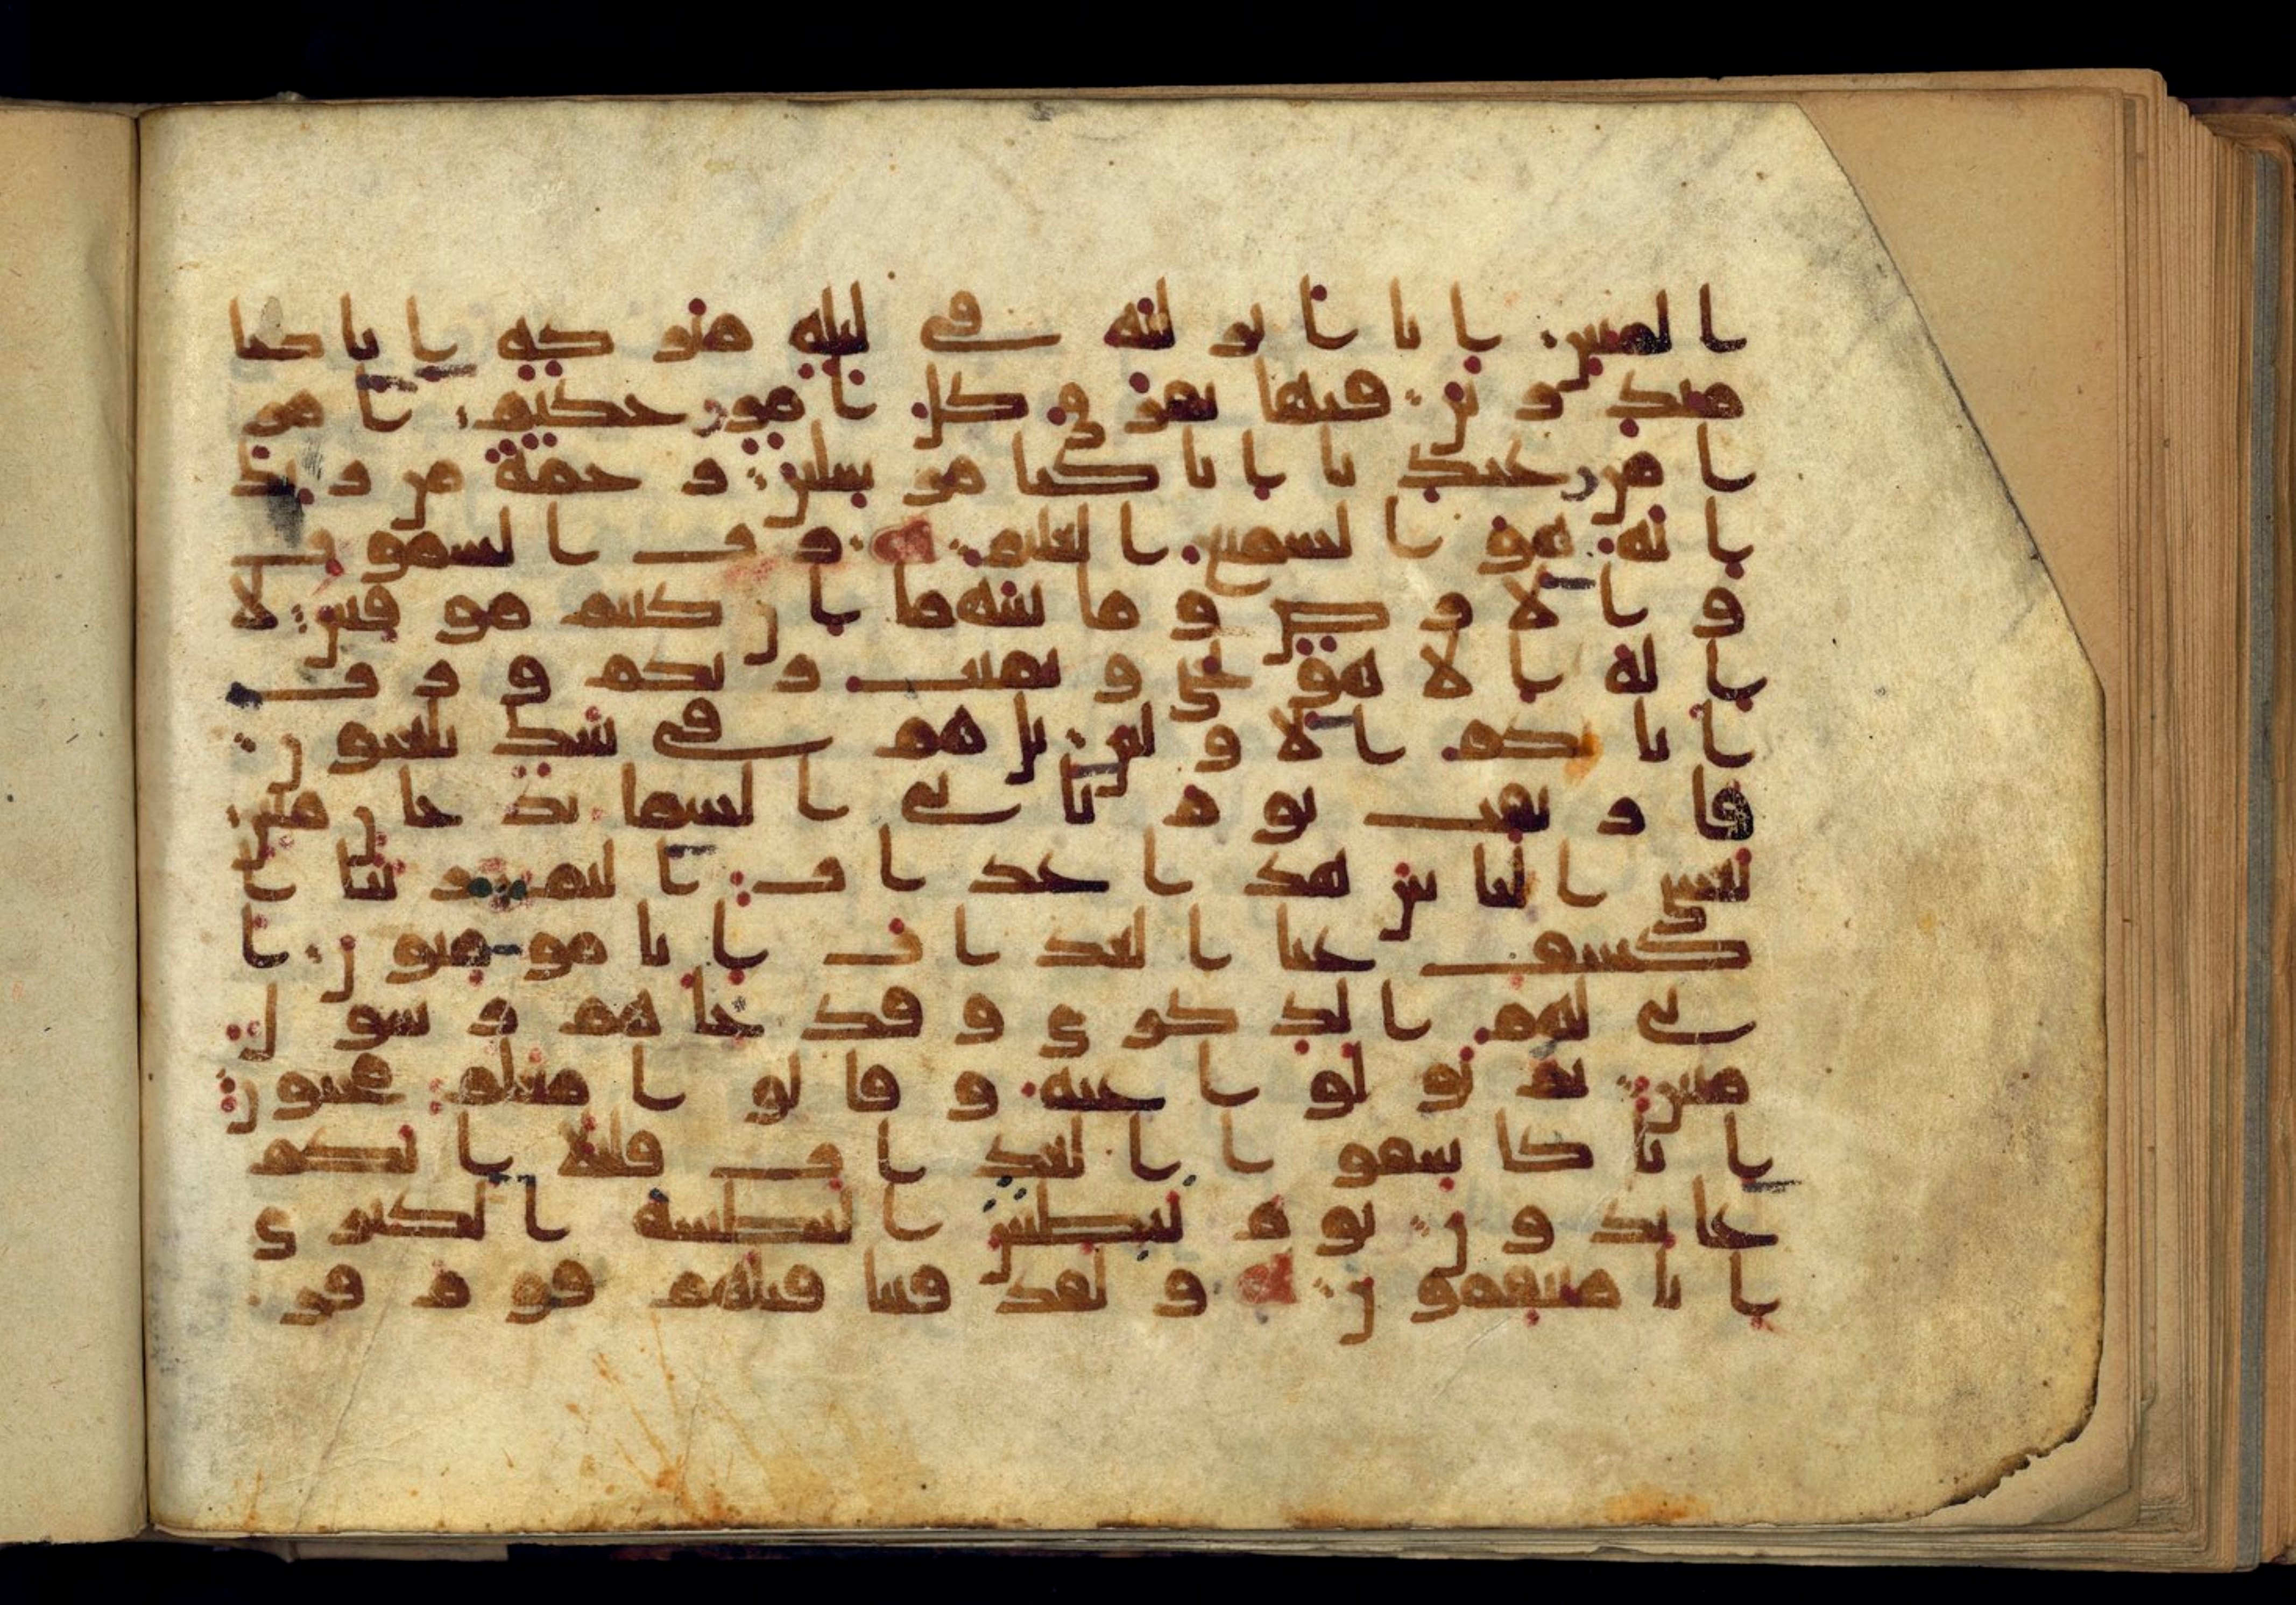 المبين انا انزلنه في ليلة مبركة انا كنا
منذرين فيها يفرق كل امر حكيم امر
ا من عندنا انا كنا مرسلين رحمة من ربك
انه هو السميع العليم رب السموت
والارض وما بينهما ان كنتم موقنين لا
اله الا هو يحي ويميت ربكم ورب
ابائكم الاولين بل هم في شك يلعبون
فارتقب يوم تاتي السما بدخان مبين
يغشى الناس هذا عذاب اليم ربنا ا
كشف عنا العذاب انا مومنون ا
نى لهم الذكرى وقد جاهم رسول
مبين ثم تولوا عنه وقالوا معلم مجنون
انا كاشفوا العذاب قليلا انكم
عايدون يوم نبطش البطشة الكبرى
انا منتقمون ولقد فتنا قبلهم قوم فر